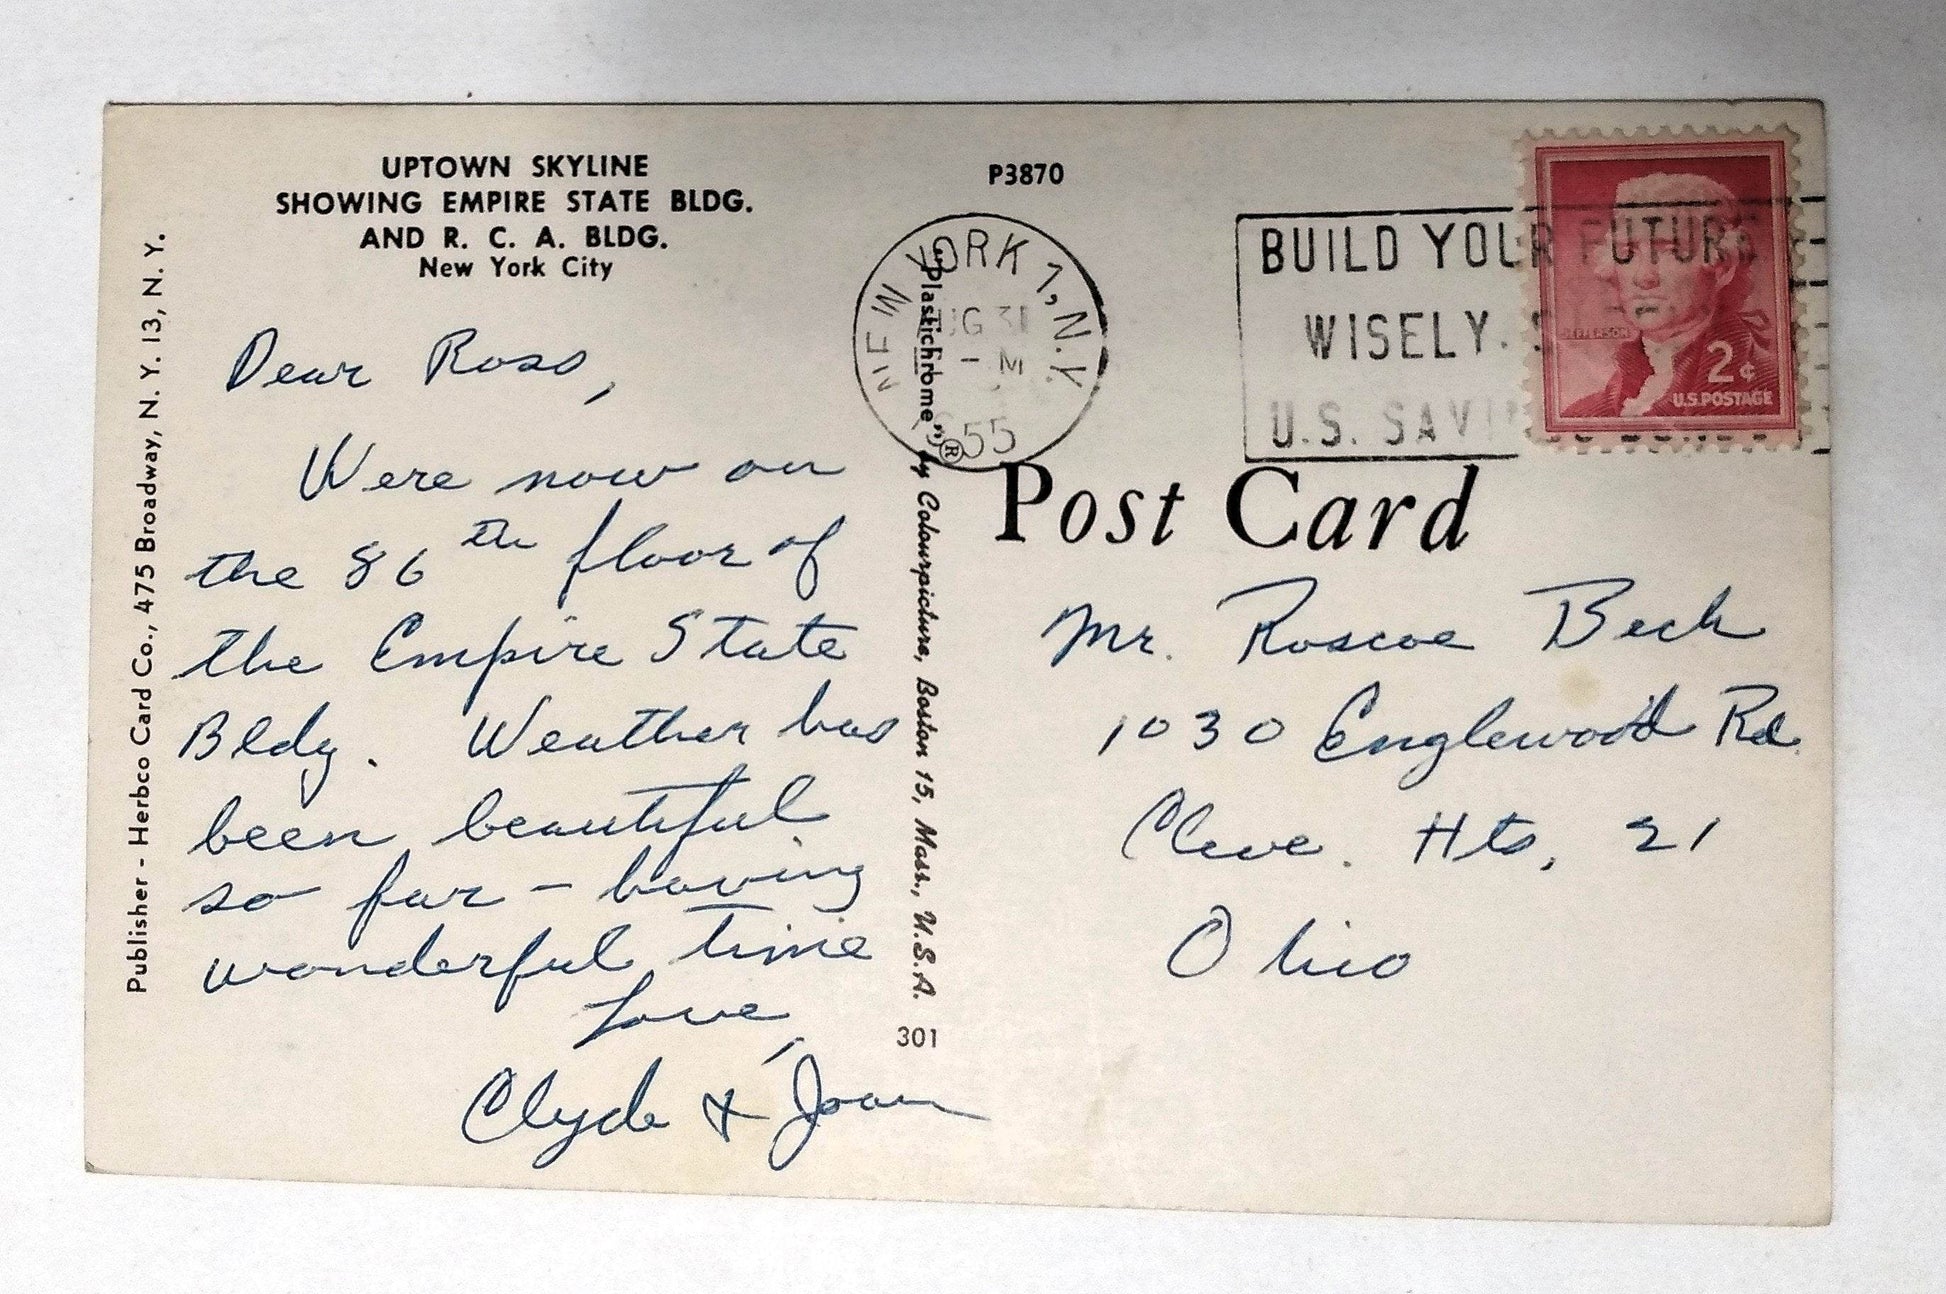 UPTOWN SKYLINE
SHOWING EMPIRE STATE BLDG.
AND R. C. A. BLDG.
New York City
Publisher - Herbco Card Co., 475 Broadway, N. Y. 13, N. Y.
Dear Ross,
Were now on
the 86th floor of
the Empire State
Bldg. Weather has
been beautiful
so far - having
wonderful time
Love,
Clyde & Joan
"Plastichrome" ® by Colourpicture, Boston 15, Mass., U.S.A.
301
P3870
NEW YORK 1, N.Y.
31
M
55
BUILD YOUR FUTURE
WISELY.
U.S. SAVINGS BONDS
JEFFERSON
2¢
U.S. POSTAGE
Post Card
Mr. Roscoe Beck
1030 Englewood Rd.
Cleve. Hts, 21
Ohio